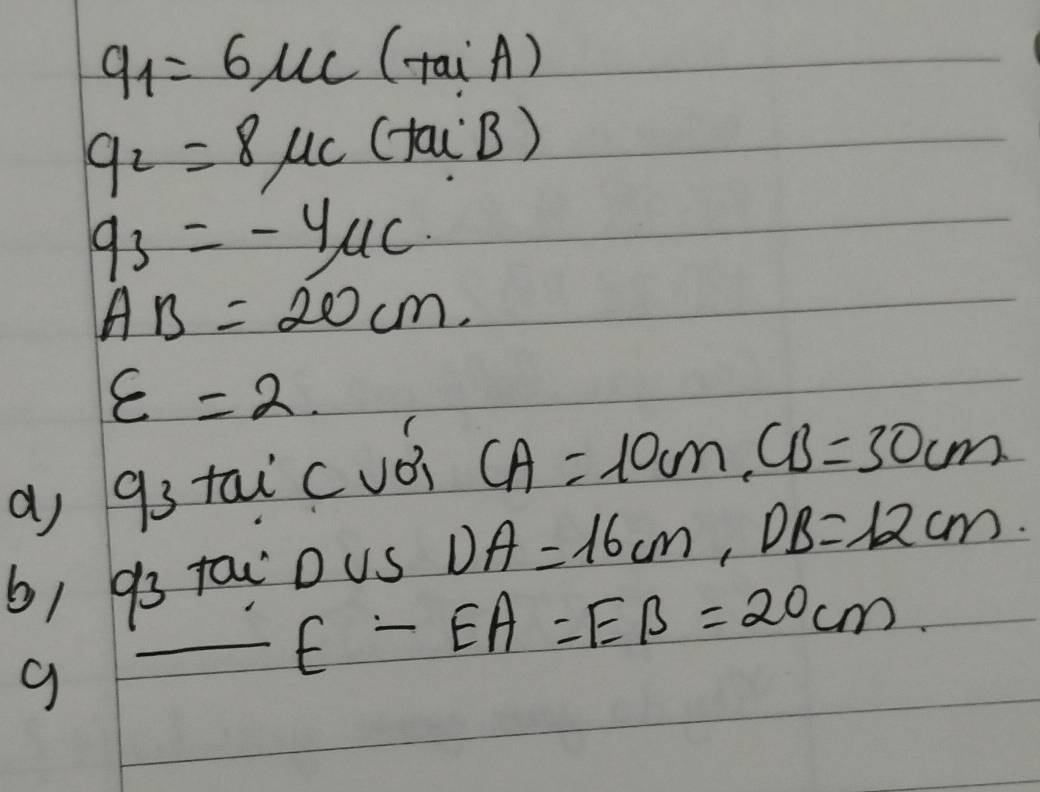 q1 = 6 μC (tại A)
q2 = 8 μC (tại B)
q3 = - 4 μC.
AB = 20 cm.
ε = 2.
a, q3 tại C với CA = 10cm, CB = 30cm
b, q3 tại D vs DA = 16cm, DB = 12 cm.
c, —— E - EA = EB = 20cm.